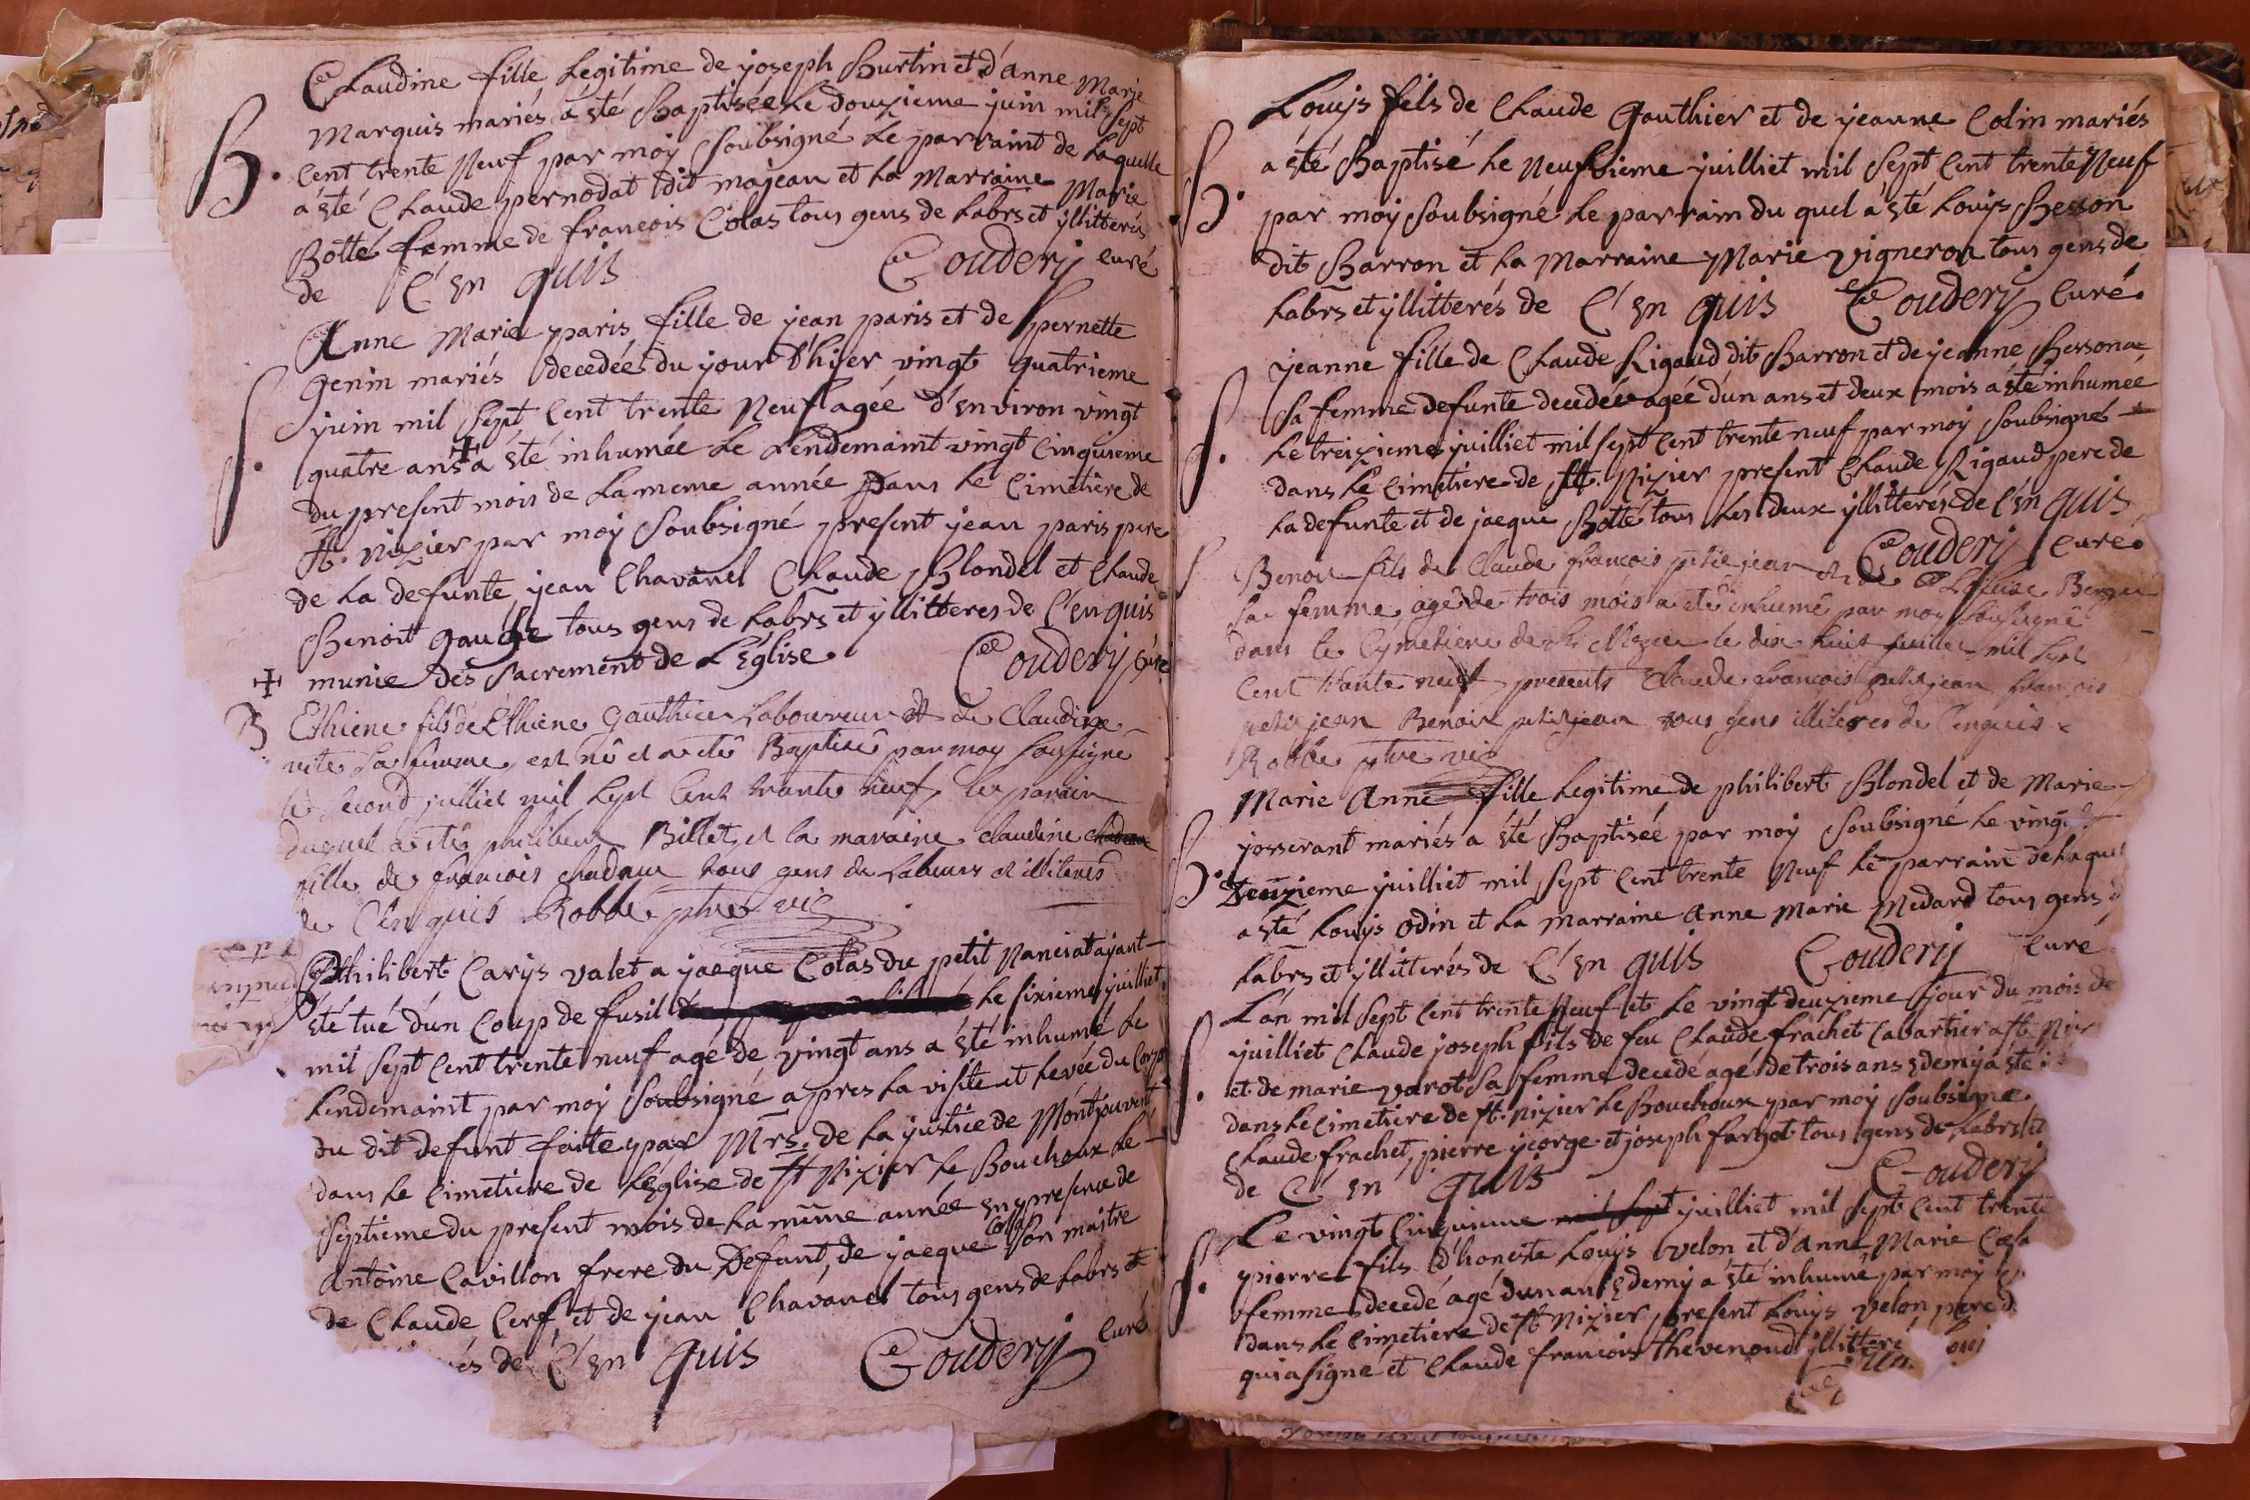 Claudine fille Legitime de joseph Burtin et d'Anne Marie
Marquis mariés a été Baptisée Le douzieme juin mil sept
B. cent trente Neuf par moÿ Soubsigné Le parraint de Laquelle
a été Claude pernodat dit majean et La Marraine Marie
Botté femme de francois Colas tous gens de Labrs et ÿllitterés
de C'en quis Couderÿ curé
Anne Marie paris fille de jean paris et de pernette
genin mariés decedée du jour d'hÿer vingt quatrieme
juin mil sept cent trente Neuf agée d'environ vingt
S. quatre ans + a été inhumée Le Lendemaint vingt cinquieme
du present mois de La meme année Dans Le cimetiere de
St. nizier par moÿ Soubsigné present jean paris pere
de La defunte, jean Chavanel Claude Blondel et Claude
Benoit gauche tous gens de Labrs et ÿllitteres de C'en quis
+ munie des Sacrement de L'Eglise Couderÿ curé
B Ethiene fils de Ethiene Gauthier Laboureur et de Claudine
sa femme est né et a eté Baptisé par moy soussigné
le second julliet mil sept cent trante neuf, le parain
duquel a eté philibert Billet et la maraine claudine
fille de francois chadeau tous gens de Labeurs et illiterés
de Cen quis Robbe ptre vic
Philibert Carÿs valet a jacque Colas du petit Nanciat aÿant
été tué d'un coup de fusil Le sixieme juilliet
mil sept cent trente neuf agé de vingt ans a été inhumé Le
Lendemaint par moÿ Soubsigné apres La visite et Levée du Corps
du dit defunt faitte par Mrs. de La justice de Montjouvent
dans Le cimetiere de L'Eglise de St Nizier Le Bouchoux Le
septieme du present mois de La même année en presence de
Antoine Cavillon frere du Defunt, de jacque Colas son maitre
de Claude Cerf et de jean Chavanel tous gens de Labrs et
de C'en quis Couderÿ curé
Louÿs fils de Claude Gauthier et de jeanne Colin mariés
a été Baptisé Le Neufvieme juilliet mil Sept cent trente Neuf
B. par moÿ Soubsigné Le parrain du quel a été Louÿs Besson
dit Barron et La Marraine Marie vigneron tous gens de
Labrs et ÿllitterés de C'en quis Couderÿ Curé.
jeanne fille de Claude Rigaud dit Barron et de jeanne Besson
Sa femme defunte decedée agée d'un ans et deux mois a été inhumée
S. Le treizieme juilliet mil sept cent trente neuf par moÿ Soubsigné
dans Le cimetiere de St. Nizier present Claude Rigaud pere de
La defunte et de jacque Botté tous Les deux ÿllitterés de C'en quis
Couderÿ curé.
S Benoit fils de Claude francois petit jean et de
Sa femme agé de trois mois a eté inhumé par moy soussigné
dans le Cymetiere de St Nizier le dix huit juillet mil sept
cent trante neuf presents Claude francois petit jean francois
petit jean Benoit petit jean tous gens illiteres de Cenquis
Robbe ptre vic
Marie Anne fille Legitime de philibert Blondel et de Marie
josserant mariés a été Baptiseé par moÿ Soubsigné Le vingt
B. deuzieme juilliet mil sept cent trente Neuf Le parrain de Laquel
a été Louÿs Odin et La marraine Anne Marie Medard tous gens d
Labrs et ÿllitterés de C'en quis Couderÿ curé
L'an mil sept cent trente Neuf et Le vingt deuzieme jour du mois de
juilliet Claude joseph fils de feu Claude frachet Cabartier a St Niz
S. et de marie varot Sa femme decedé agé de trois ans & demÿ a été i
dans Le cimetiere de St. Nizier Le Bouchoux par moÿ Soubsigné
Claude frachet, pierre jeorge et joseph farget tous gens de Labrs et
de C'en quis Couderÿ
Le vingt cinquieme juilliet mil sept cent trente
pierre fils d'honeste Louÿs velon et d'Anne Marie
S. femme decedé agé d'un an & demÿ a été inhumé par moÿ
dans Le cimetiere de St Nizier present Louÿs velon pere d
qui a signé et Claude francois thevenoud ÿllitteré